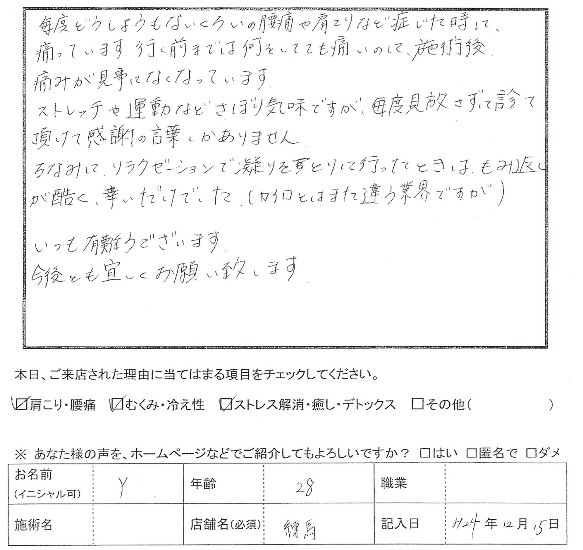 毎度どうしようもないくらいの腰痛や肩こりなど症じた時に、
痛っています 行く前までは何をしてても痛いのに、施術後
痛みが見事になくなっています
ストレッチや運動などさぼり気味ですが、毎度見放さずに診て
頂けて感謝の言葉しかありません
ちなみに、リラクゼーションで凝りをとりに行ったときは、もみ返し
が酷く、辛いだけでした。(カイロとはまた違う業界ですが)
いつも有難うございます
今後とも宜しくお願い致します
本日、ご来店された理由に当てはまる項目をチェックしてください。
☑肩こり・腰痛 ☑むくみ・冷え性 ☑ストレス解消・癒し・デトックス □その他( )
※ あなた様の声を、ホームページなどでご紹介してもよろしいですか? □はい □匿名で □ダメ
お名前 (イニシャル可) Y 年齢 28 職業
施術名 店舗名(必須) 練馬 記入日 H24年12月15日